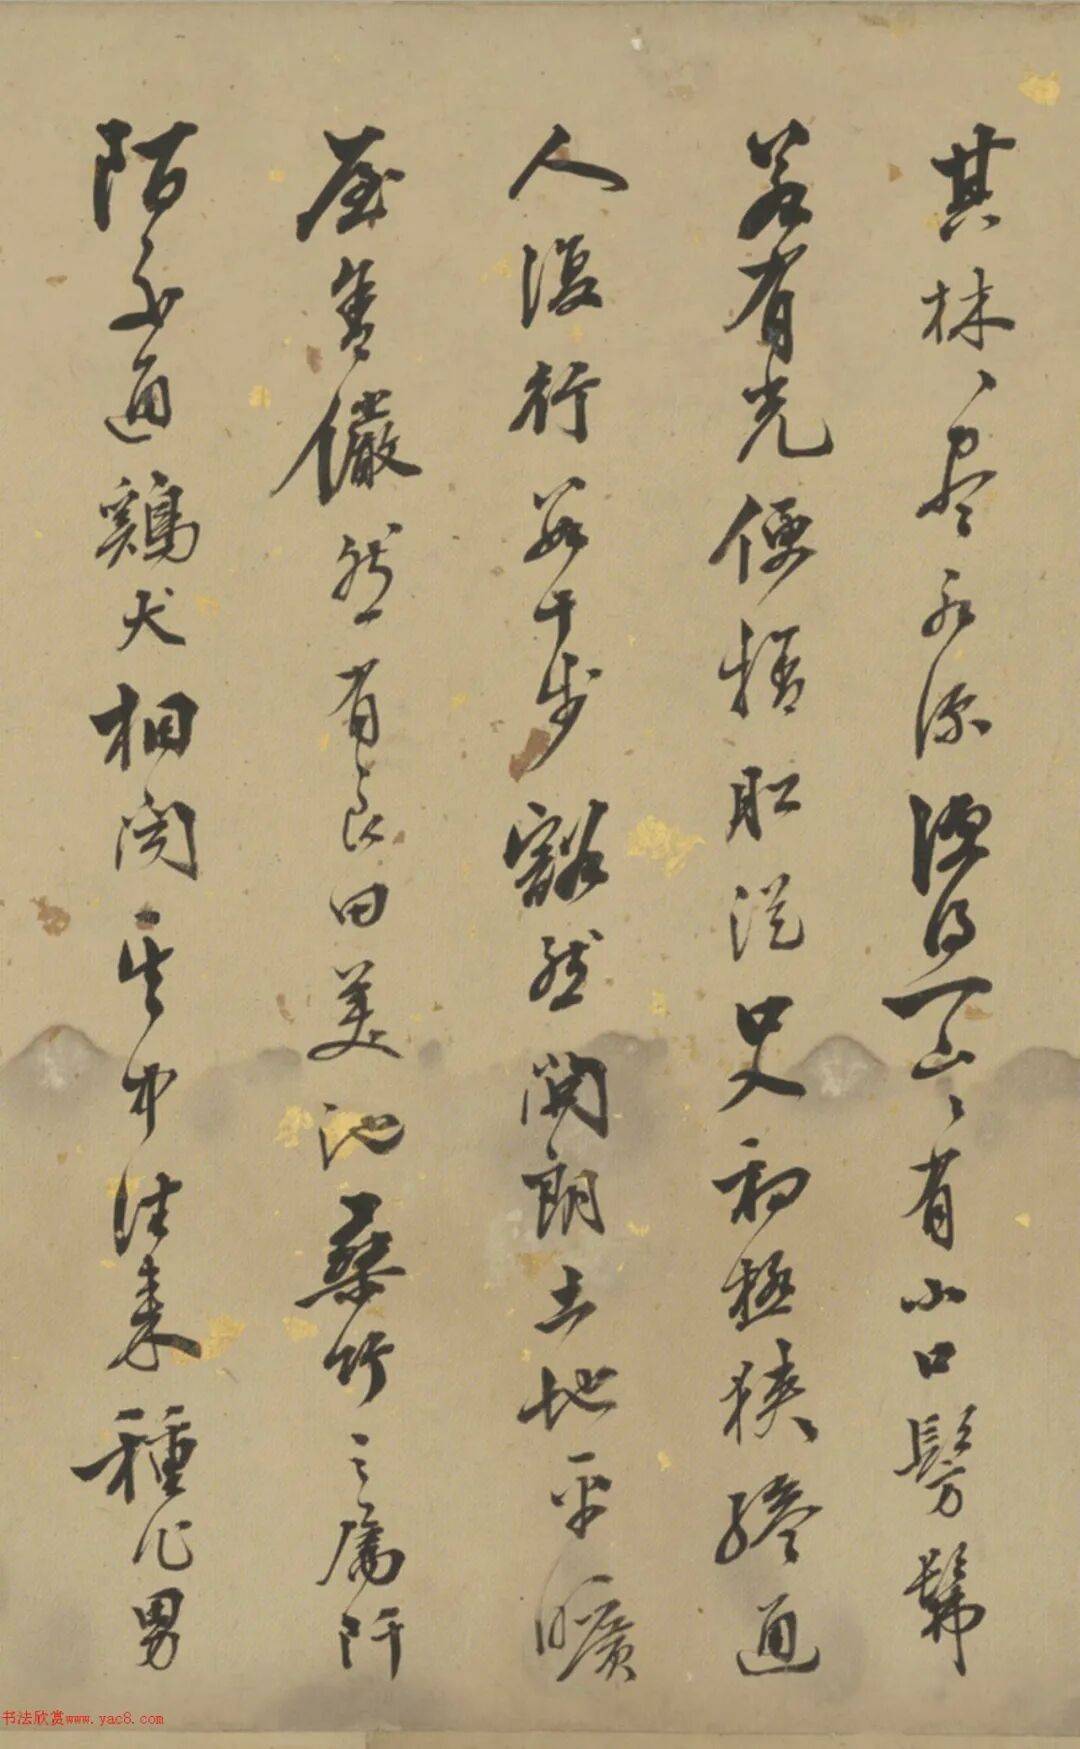 其林〻盡水源便得一山〻有小口髣髴
若有光便捨舡從口入初極狹纔通
人復行數十步豁然開朗土地平曠
屋舍儼然有良田美池桑竹之屬阡
陌交通鷄犬相聞其中往来種作男
书法欣赏www.yac8.com